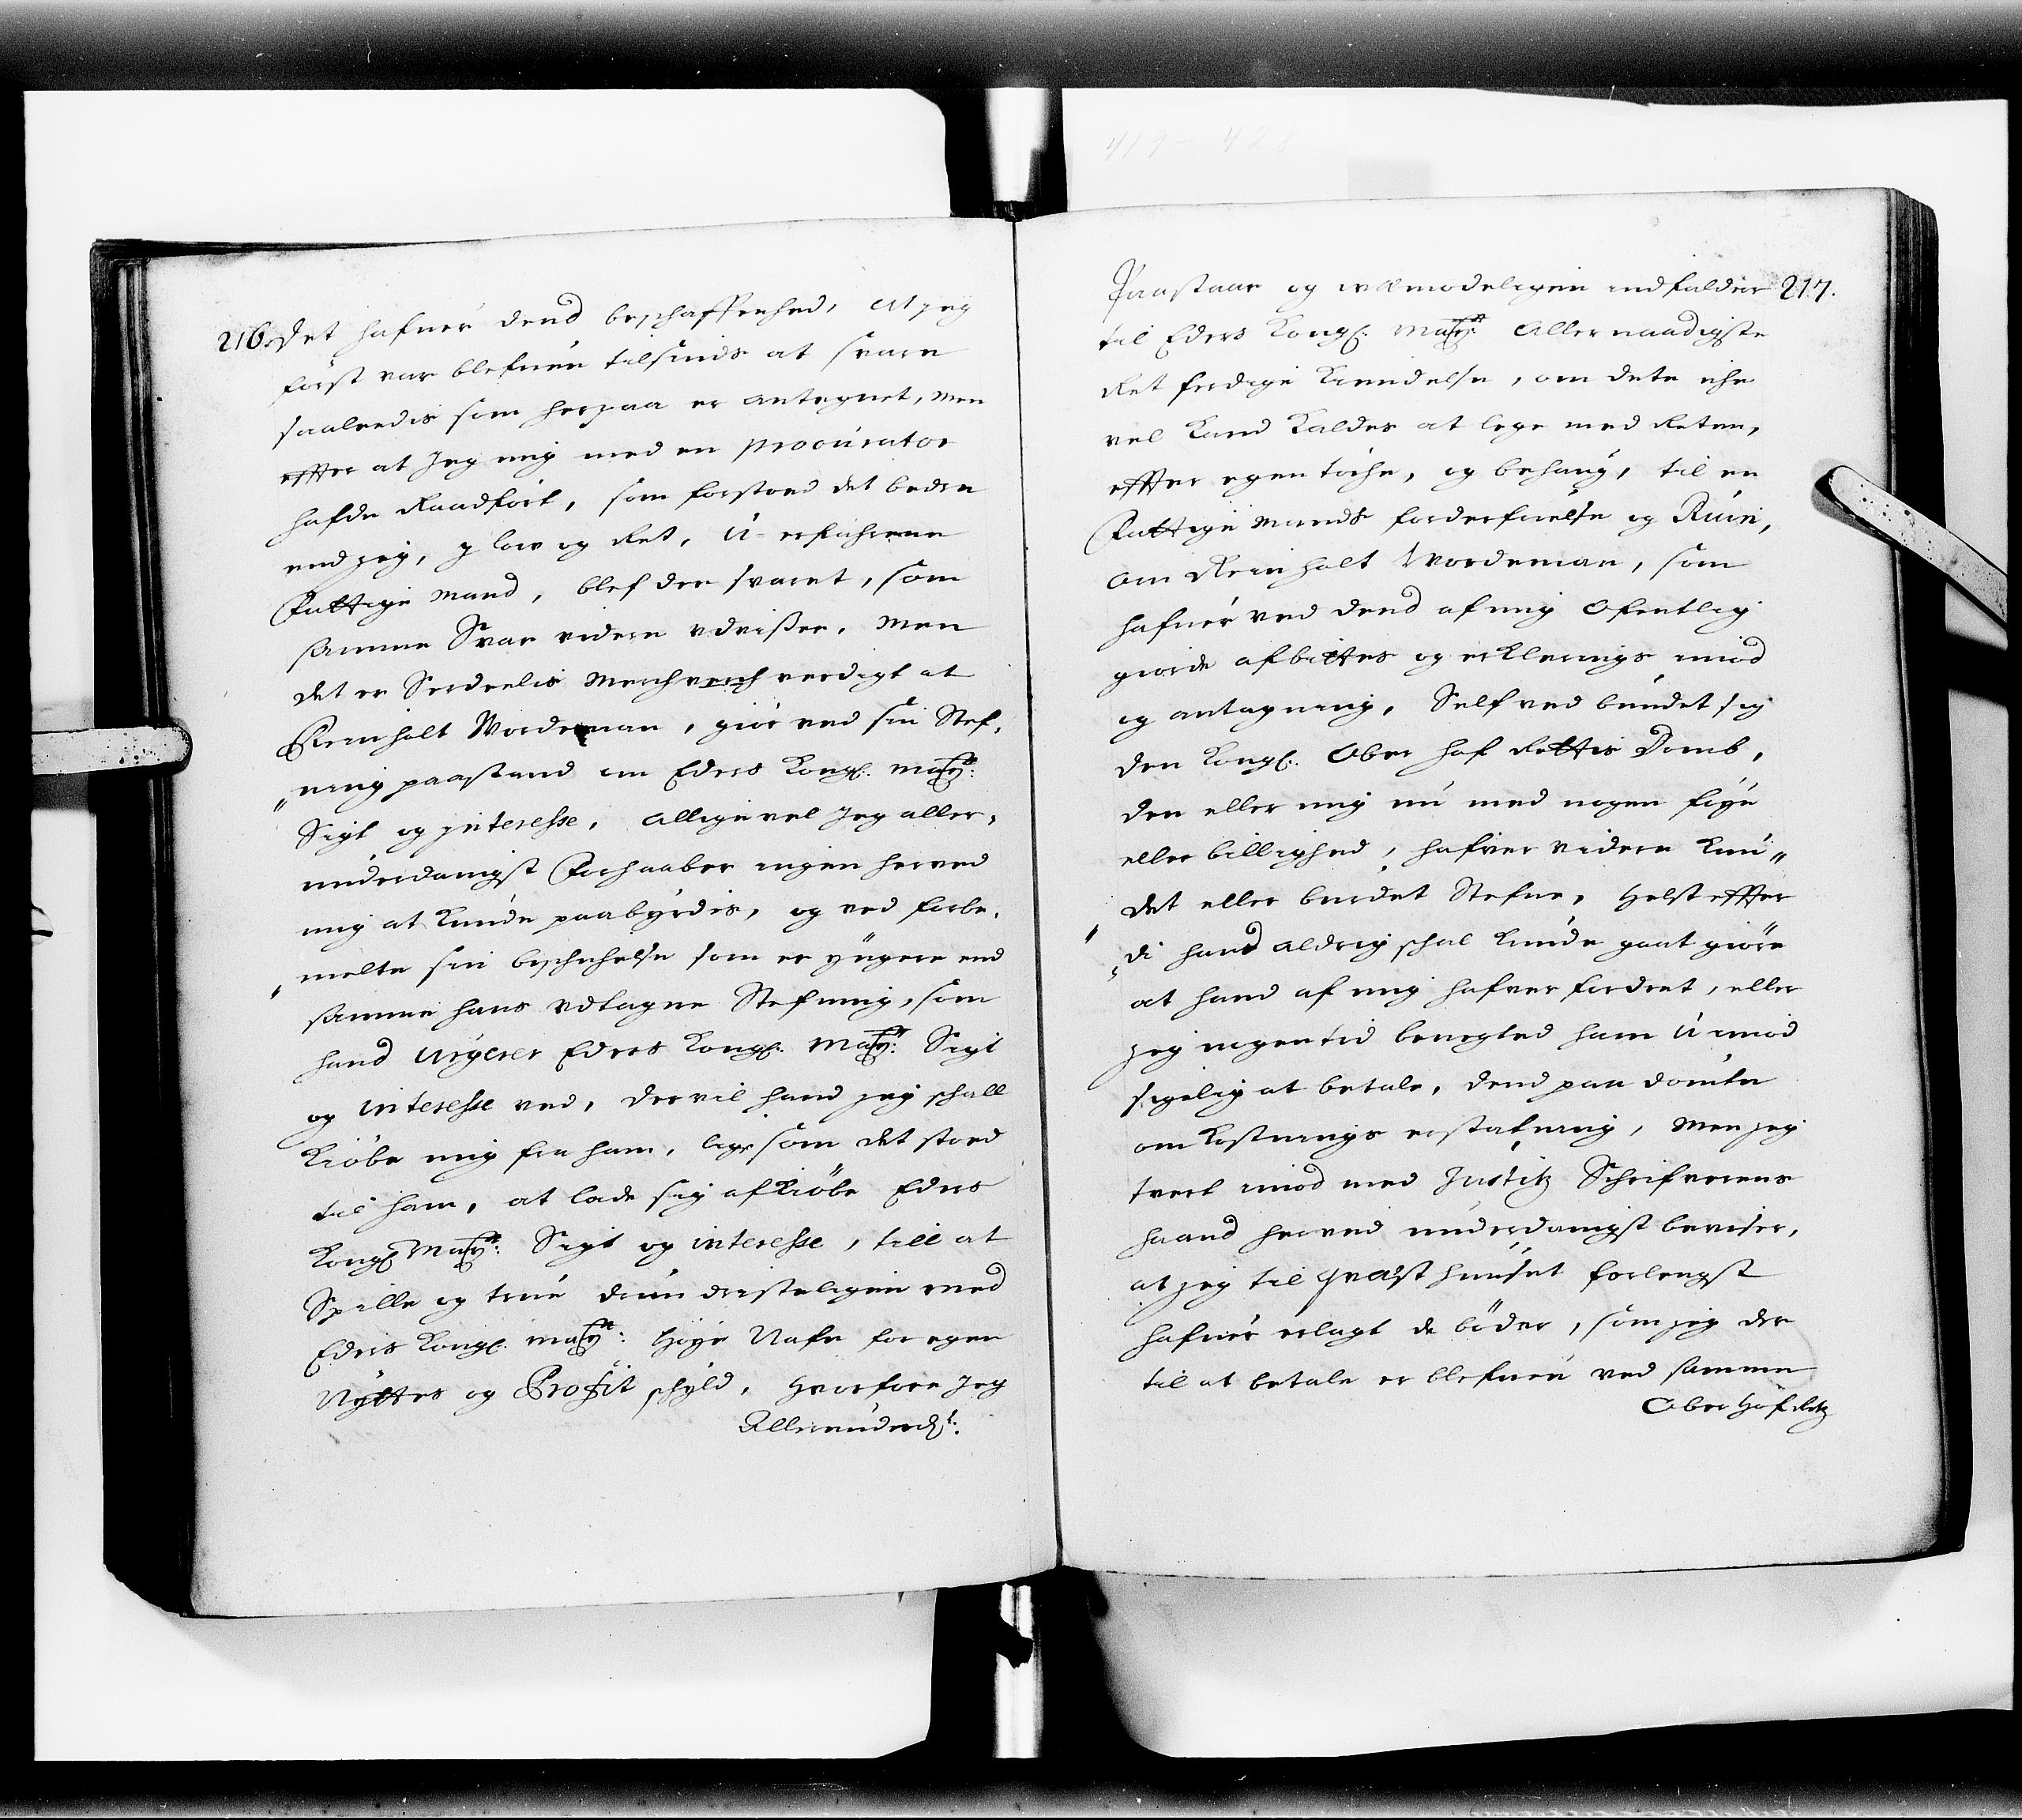 216. det hafuer dend beschaffenhed, at jeg
først var blefuen tilsinds at svare
saaleedis som herpaa er antegnet, men
effter at Jeg mig med en procurator
hafde Raadført, som forstoed det bedre
end jeg, J lov og Ret, U-erfahrene
Fattige Mand, blef der svaret, som
samme Svar videre udviser. Men
det er Serdeelis Merchverch verdigt at
Reinholt Wordeman, giør ved sin Stef,
„ning paastand om Eders Kongl: Maytz:
Sigt og Interesse, alligevel Jeg aller,
underdanigst Forhaaber ingen herved
mig at kunde paabyrdis, og ved forbe,
„melte sin beschyhelse som er yngere end
samme hans udtagne Stefning, som
hand Urgerer Eders Kongl: Maytz: Sigt
og interesse ved, der vil hand jeg schall
kiøbe mig fra ham, lige som det stoed
til ham, at lade sig afkiøbe Eders
Kongl Maytz: Sigt og interesse, till at
Spille og true driidristeligen med
Edris Kongl: Maytz: høye Nafn for egen
Nyttes og Profit schyld, hvorfore Jeg
Allerunderdt:
Paastaar og velmodeligen indfalder 217.
til Eders Kongl: Maytz: Allernaadigste
Retferdige Kiendelse, om dete iche
vel kand kaldes at lege med Reten,
effter egen tøche, og behaug, til en
Fattige Mands forderfuelse og Ruin,
om Reinholt Wordeman, som
hafuer ved dend af mig ofentlig
giorde afbittes og erklerings imod
og antagning, Self ved bundet sig
den Kongl: Ober Hof Rettis Domb,
den eller mig nu med nogen føye
eller billighed, hafver videre kun„
det eller burdet Stefne, helst effter
„di hand aldrig schal kunde got giøre
at hand af mig hafver fordret, eller
jeg ingen tid benegted ham U-imod
sigelig at betale, dend paa dømte
om kostnings erstatning, men jeg
tvert imod med Justitz Schrifverens
haand herved underdanigst beviser,
at jeg til qvæsthuuset forlengst
hafuer erlagt de bøder, som jeg der
til at betale er blefuen ved samme
Ober Hof Retz